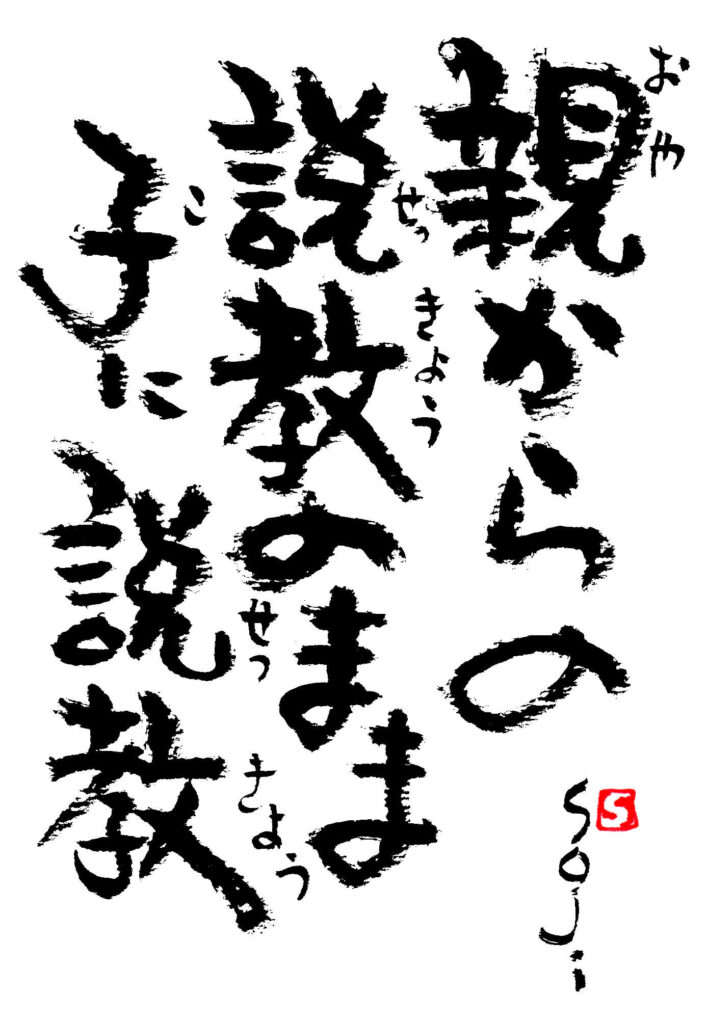 親からの
おや
説教のまま
せっきょう
子に説教
こ
せっきょう
soji
S